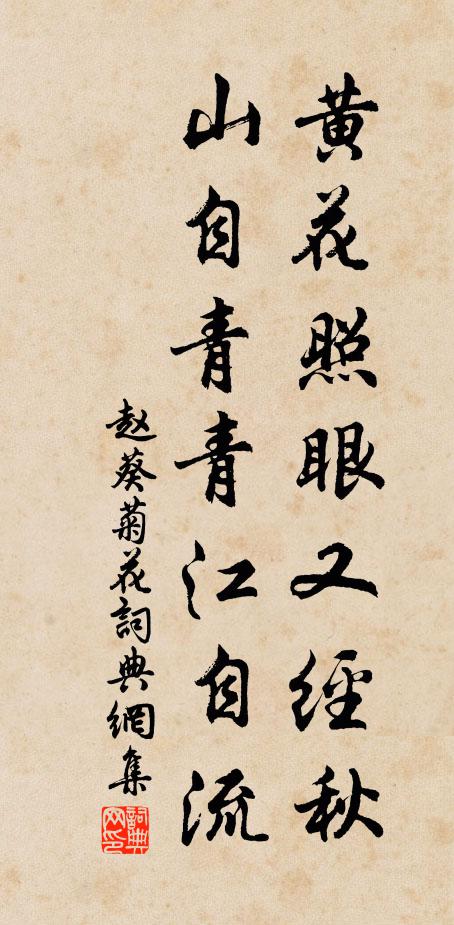 黄花照眼又經秋
山自青青江自流
赵葵菊花詞典網集
詞典网印